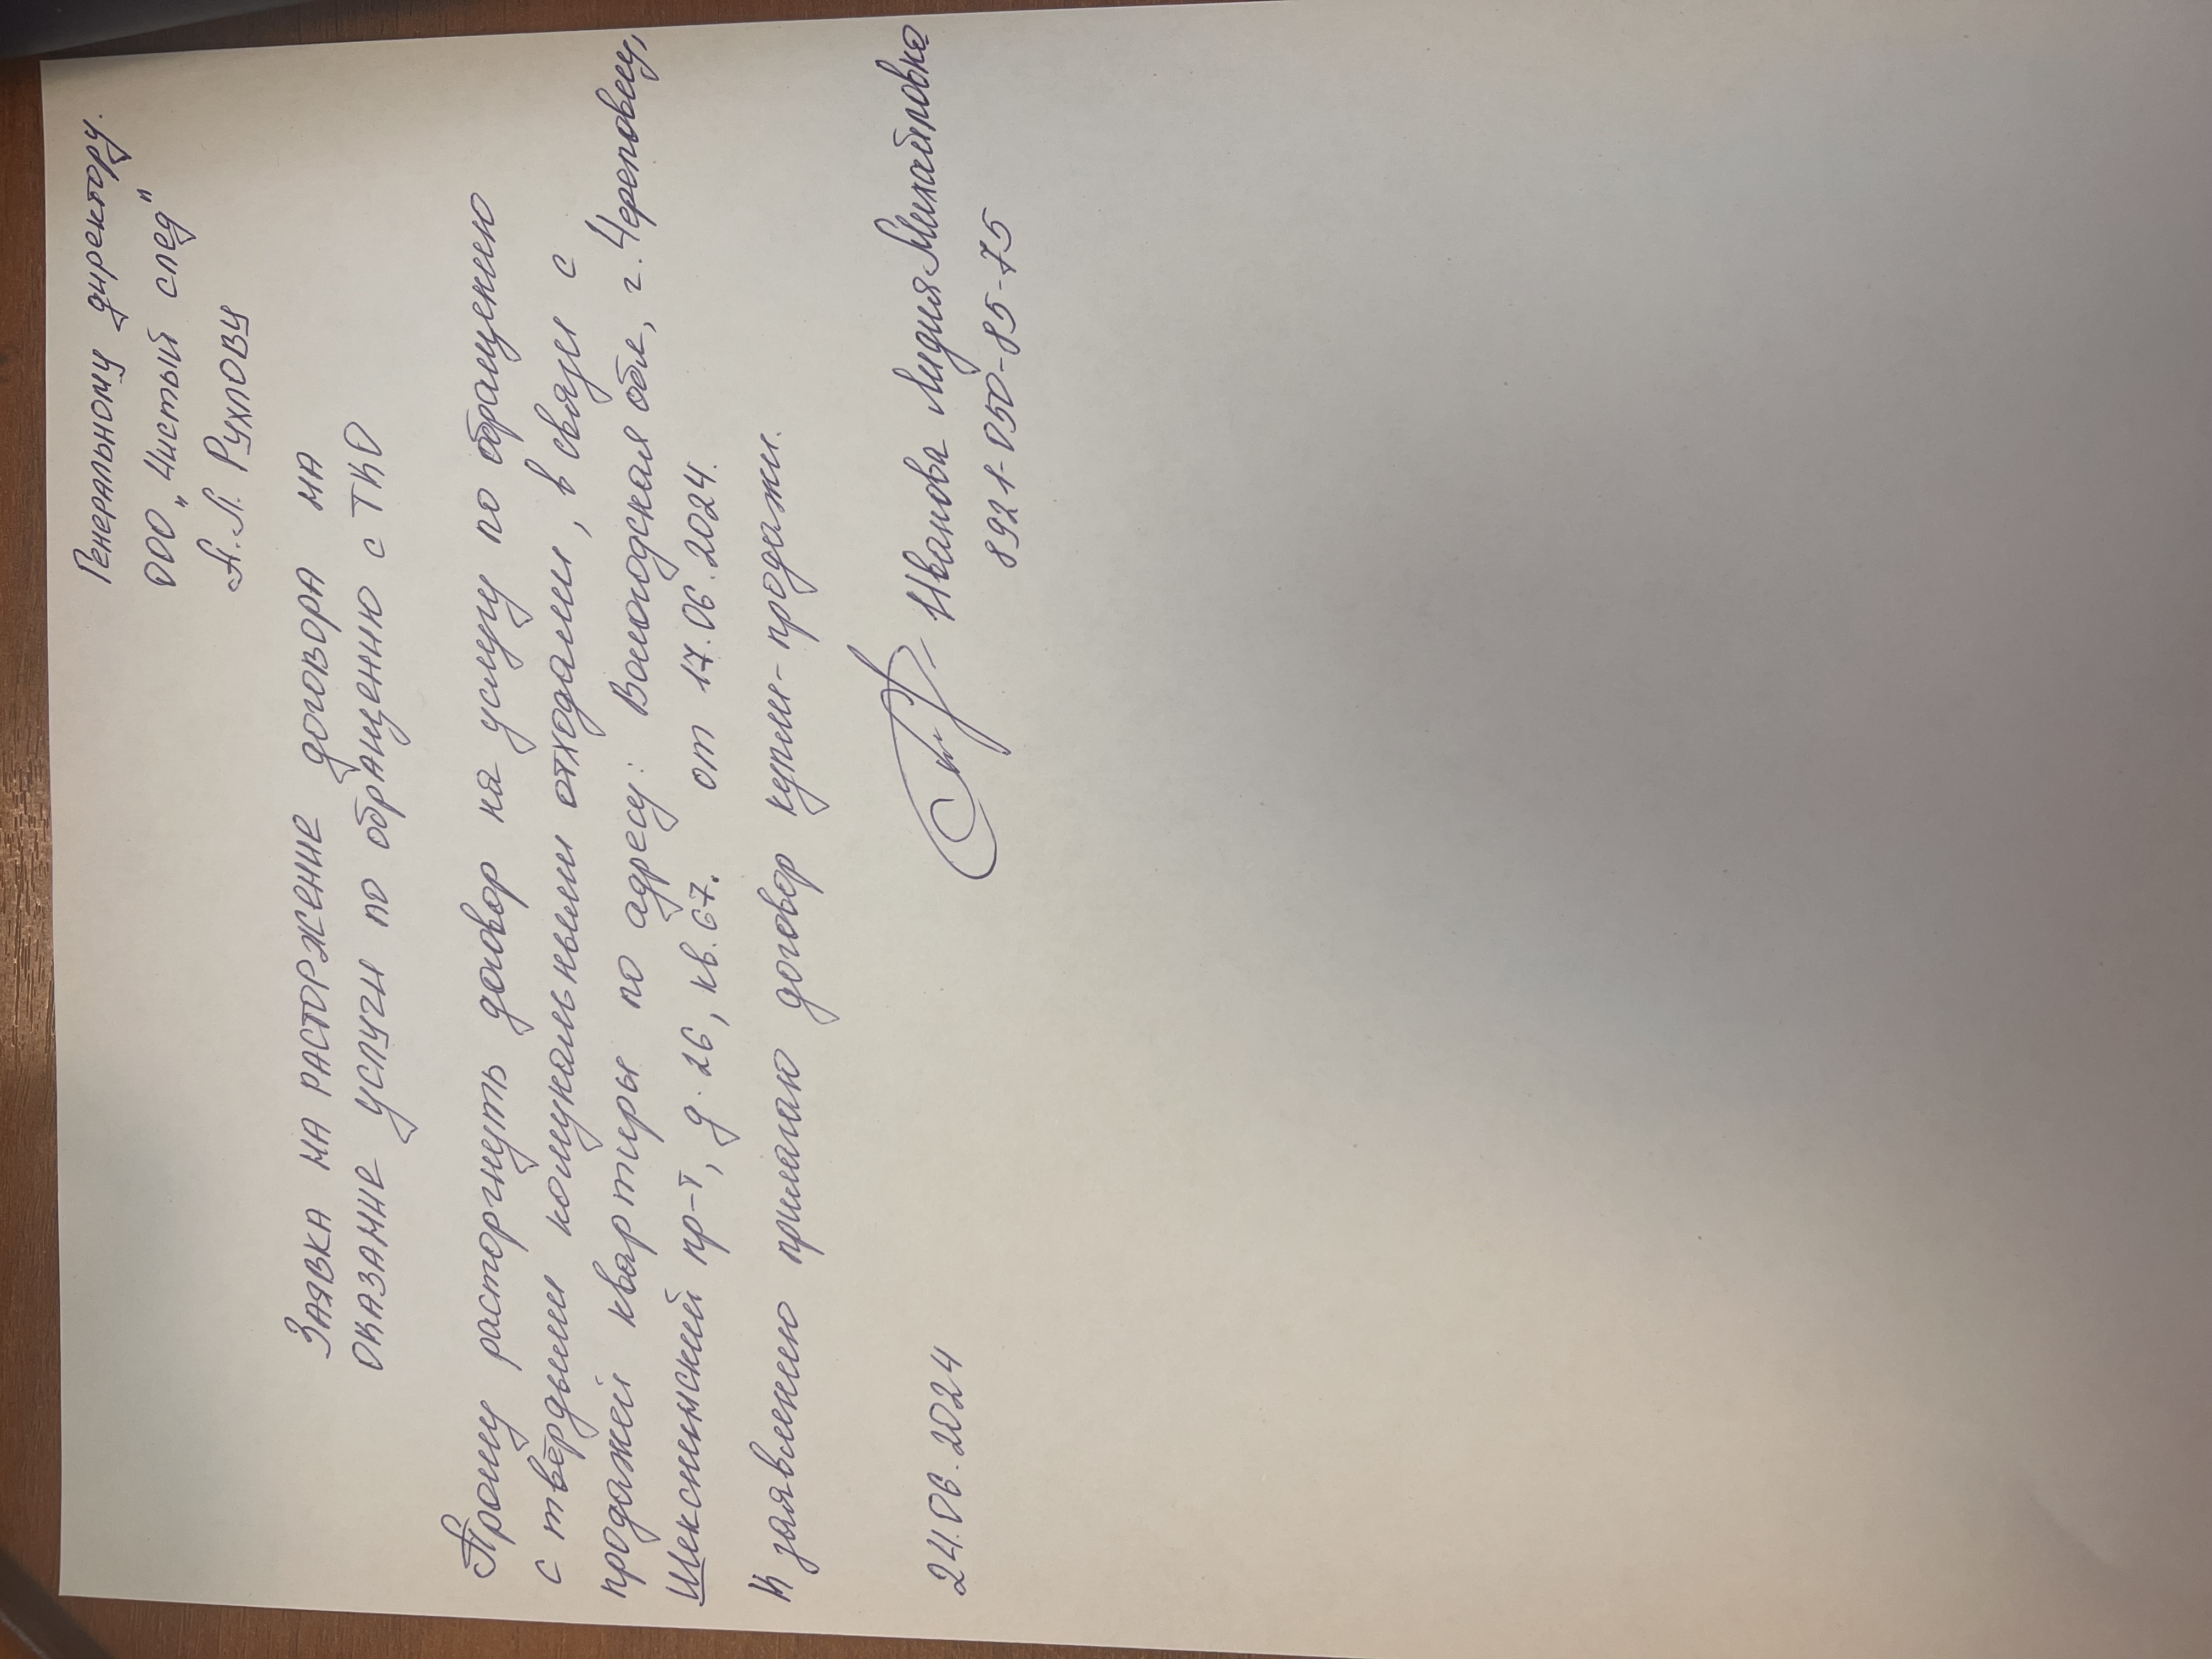 Генеральному директору.
ООО „Чистый след"
А.Л. Рухлову
Заявка на расторжение договора на
оказание услуги по обращению с ТКО
Прошу расторгнуть договор на услугу по обращению
с твёрдыми комунальными отходами, в связи с
продажей квартиры по адресу: Вологодская обл, г. Череповец,
Шекснинский пр-т, д. 26, кв. 67. от 17.06.2024.
К заявлению прилагаю договор купли-продажи.
24.06.2024 Иванова Лидия Михайловна
8921-050-85-75